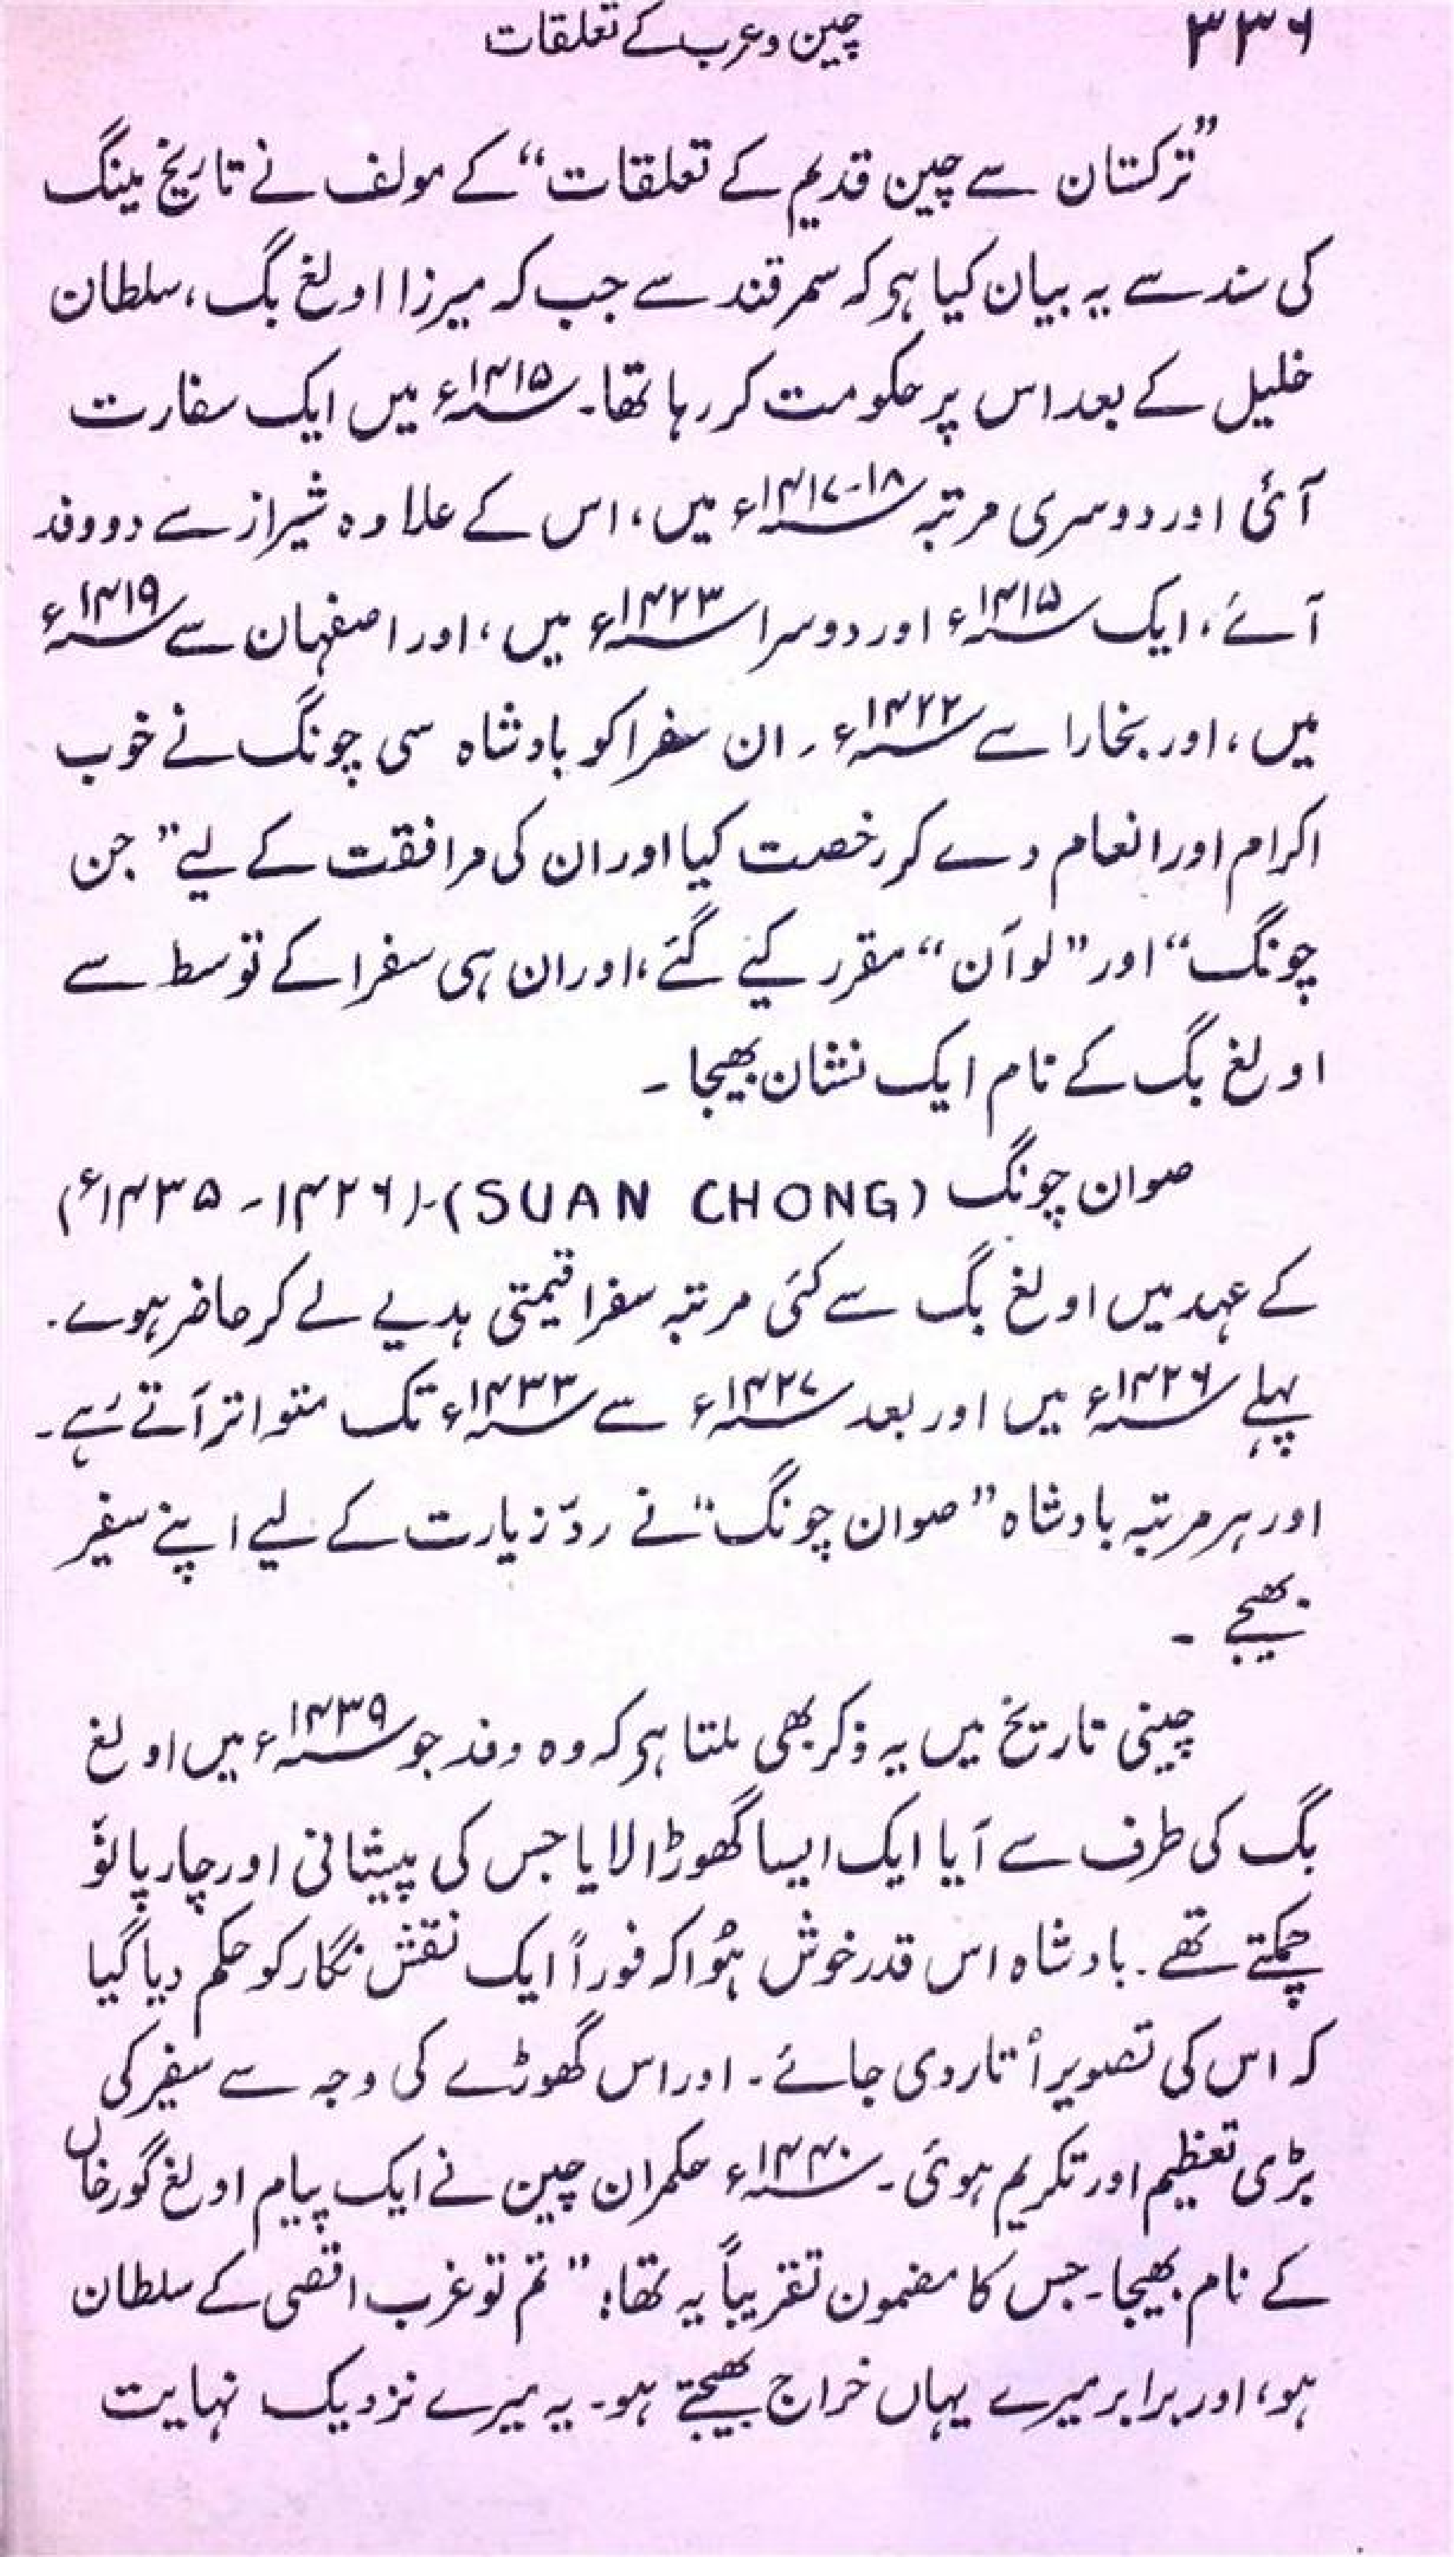 ۳۳۶ چین و عرب کے تعلقات
”ترکستان سے چین قدیم کے تعلقات“ کے مولف نے تاریخ مینگ
کی سند سے یہ بیان کیا ہو کہ سمرقند سے جب کہ میرزا اولغ بگ، سلطان
خلیل کے بعد اس پر حکومت کر رہا تھا۔ ۱۴۱۵ء میں ایک سفارت
آئی اور دوسری مرتبہ ۱۸-۱۴۱۷ء میں، اس کے علاوہ شیراز سے دو وفد
آئے، ایک ۱۴۱۵ء اور دوسرا ۱۴۲۳ء میں، اور اصفہان سے ۱۴۱۹ء
میں، اور بخارا سے ۱۴۲۲ء۔ ان سفرا کو بادشاہ سی چونگ نے خوب
اکرام اور انعام دے کر رخصت کیا اور ان کی مرافقت کے لیے ”جن
چونگ“ اور ”لوآن“ مقرر کیے گئے، اور ان ہی سفرا کے توسط سے
اولغ بگ کے نام ایک نشان بھیجا۔
صوان چونگ (SUAN CHONG)۔(۱۴۲۶۔۱۴۳۵ء)
کے عہد میں اولغ بگ سے کئی مرتبہ سفرا قیمتی ہدیے لے کر حاضر ہوے۔
پہلے ۱۴۲۶ء میں اور بعد ۱۴۲۷ء سے ۱۴۳۳ء تک متواتر آتے رہے۔
اور ہر مرتبہ بادشاہ ”صوان چونگ“ نے ردّ زیارت کے لیے اپنے سفیر
بھیجے۔
چینی تاریخ میں یہ ذکر بھی ملتا ہو کہ وہ وفد جو ۱۴۳۹ء میں اولغ
بگ کی طرف سے آیا ایک ایسا گھوڑا لایا جس کی پیشانی اور چار پانؤ
چمکتے تھے۔ بادشاہ اس قدر خوش ہُوا کہ فوراً ایک نقش نگار کو حکم دیا گیا
کہ اس کی تصویر اُتار دی جائے۔ اور اس گھوڑے کی وجہ سے سفیر کی
بڑی تعظیم اور تکریم ہوئی۔ ۱۴۴۰ء حکمران چین نے ایک پیام اولغ گورخاں
کے نام بھیجا۔ جس کا مضمون تقریباً یہ تھا: ”تم تو غرب اقصی کے سلطان
ہو، اور برابر میرے یہاں خراج بھیجتے ہو۔ یہ میرے نزدیک نہایت